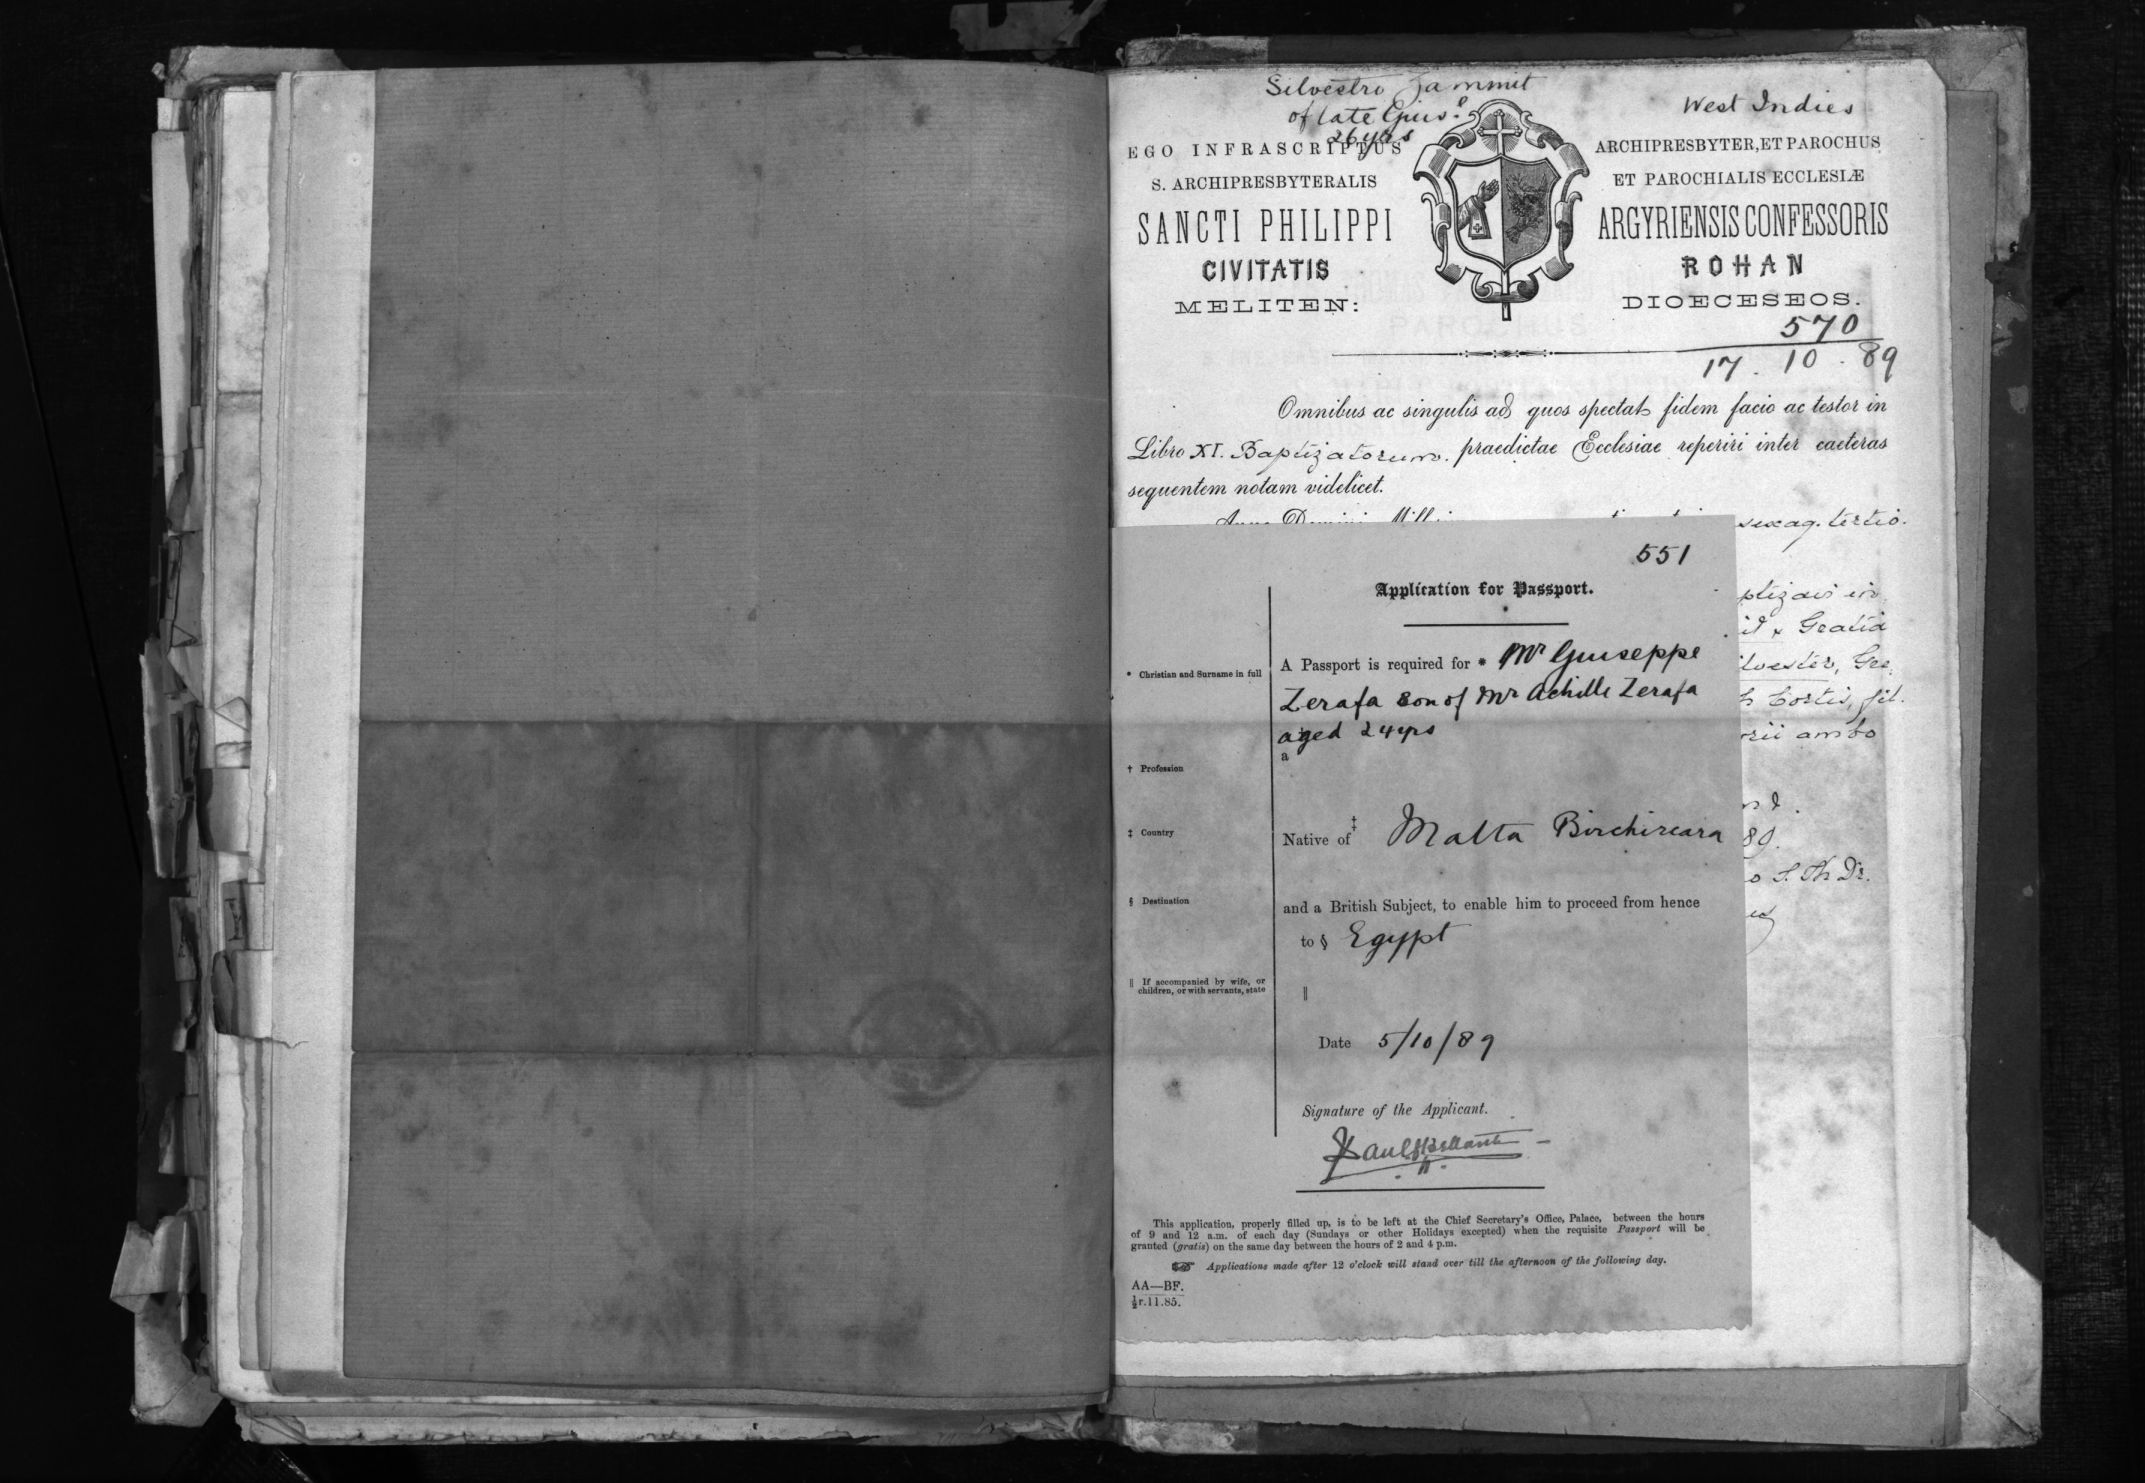 Silvestro Zammit
of late Gius.e
26 yrs
West Indies
EGO INFRASCRIPTUS
ARCHIPRESBYTER, ET PAROCHUS
S. ARCHIPRESBYTERALIS
ET PAROCHIALIS ECCLESIÆ
SANCTI PHILIPPI
ARGYRIENSIS CONFESSORIS
CIVITATIS
ROHAN
MELITEN:
DIOECESEOS.
570
17 . 10 . 89
Omnibus ac singulis ad quos spectat fidem facio ac testor in
Libro XI. Baptizatorum. praedictae Ecclesiae reperiri inter caeteras
sequentem notam videlicet.
sexag. tertio.
Gratia
Cortis, fil.
ambo
S. Th. Dr.
551
Application for Passport.
* Christian and Surname in full
A Passport is required for * Mr Giuseppe
Zerafa son of Mr Achille Zerafa
aged 24 yrs
a
† Profession
‡ Country
Native of ‡ Malta Birchircara
§ Destination
and a British Subject, to enable him to proceed from hence
to § Egypt
‖ If accompanied by wife, or
children, or with servants, state
‖
Date 5/10/89
Signature of the Applicant.
This application, properly filled up, is to be left at the Chief Secretary's Office, Palace, between the hours
of 9 and 12 a.m. of each day (Sundays or other Holidays excepted) when the requisite Passport will be
granted (gratis) on the same day between the hours of 2 and 4 p.m.
☞ Applications made after 12 o'clock will stand over till the afternoon of the following day.
AA—BF.
½r.11.85.